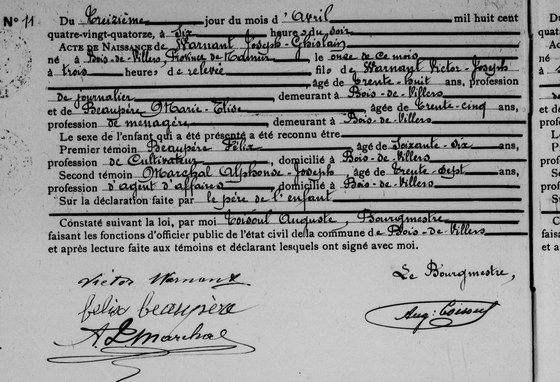 N° 11
Du Treizième jour du mois d'Avril mil huit cent
quatre-vingt-quatorze, à Six heures du soir
ACTE DE NAISSANCE de Warnant Joseph-Ghislain
né à Bois-de-Villers, Province de Namur le onze de ce mois
à trois heures de relevée fils de Warnant Victor-Joseph
âgé de trente-huit ans, profession
de journalier demeurant à Bois-de-Villers
et de Beaupère Marie-Elise âgée de trente-cinq ans,
profession de ménagère demeurant à Bois-de-Villers
Le sexe de l'enfant qui a été présenté a été reconnu être
Premier témoin Beaupère Félix, âgé de Soixante-Six ans,
profession de Cultivateur, domicilié à Bois-de-Villers
Second témoin Marchal Alphonse-Joseph, âgé de trente-sept ans,
profession d'agent d'affaires, domicilié à Bois-de-Villers
Sur la déclaration faite par le père de l'enfant
Constaté suivant la loi, par moi Loiseul Auguste, Bourgmestre,
faisant les fonctions d'officier public de l'état civil de la commune de Bois-de-Villers
et après lecture faite aux témoins et déclarant lesquels ont signé avec moi.
Le Bourgmestre,
Victor Warnant
felix beaupère
Aug. Loiseul
A J marchal